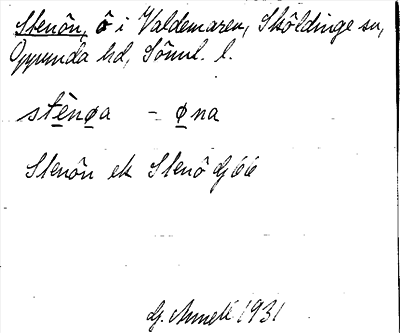 Stenön, ö i Valdemaren, Sköldinge sn,
Oppunda hd, Söml. l.
stènøa - øna
Stenön ek Stenö
G. Annell 1931